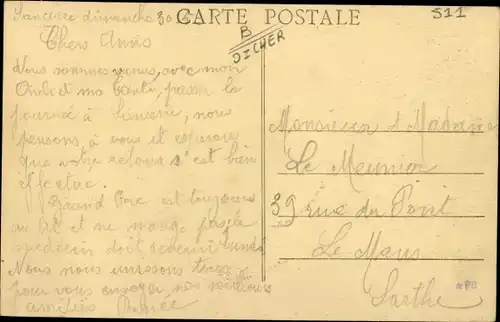 Sancerre dimanche 30
CARTE POSTALE
511
B
DICHER
Chers Amis
Nous sommes venus, avec mon
Oncle et ma tante, passer la
journée à nous
pensons à vous et espérons
que votre retour s'est bien
effectué.
Grand Père est toujours
au lit et ne mange pas, le
médecin doit revenir lundi
Nous nous unissons tous
pour vous envoyer nos meilleures
amitiés
Monsieur et Madame
Le Meunier
39 rue du Pont
Le Mans
Sarthe